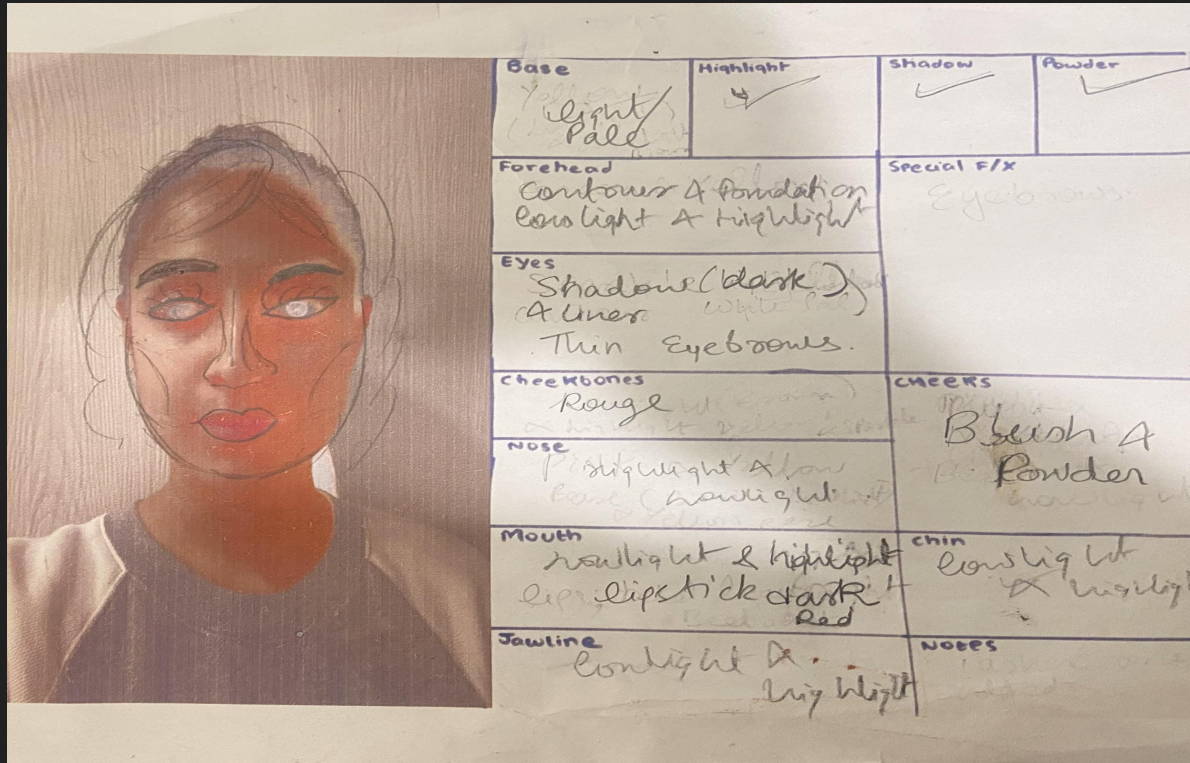 Base
light/
Pale
Highlight
Shadow
Powder
Forehead
Contour & Foundation
lowlight & Highlight
Special F/X
Eyebrows
Eyes
Shadow (dark)
& Liner
Thin Eyebrows.
Cheekbones
Rouge
CHEEKS
Blush &
Powder
Nose
Highlight &
lowlight.
Mouth
lowlight & highlight
lipstick dark
Red
Chin
lowlight
&
Jawline
lowlight &
highlight
Notes